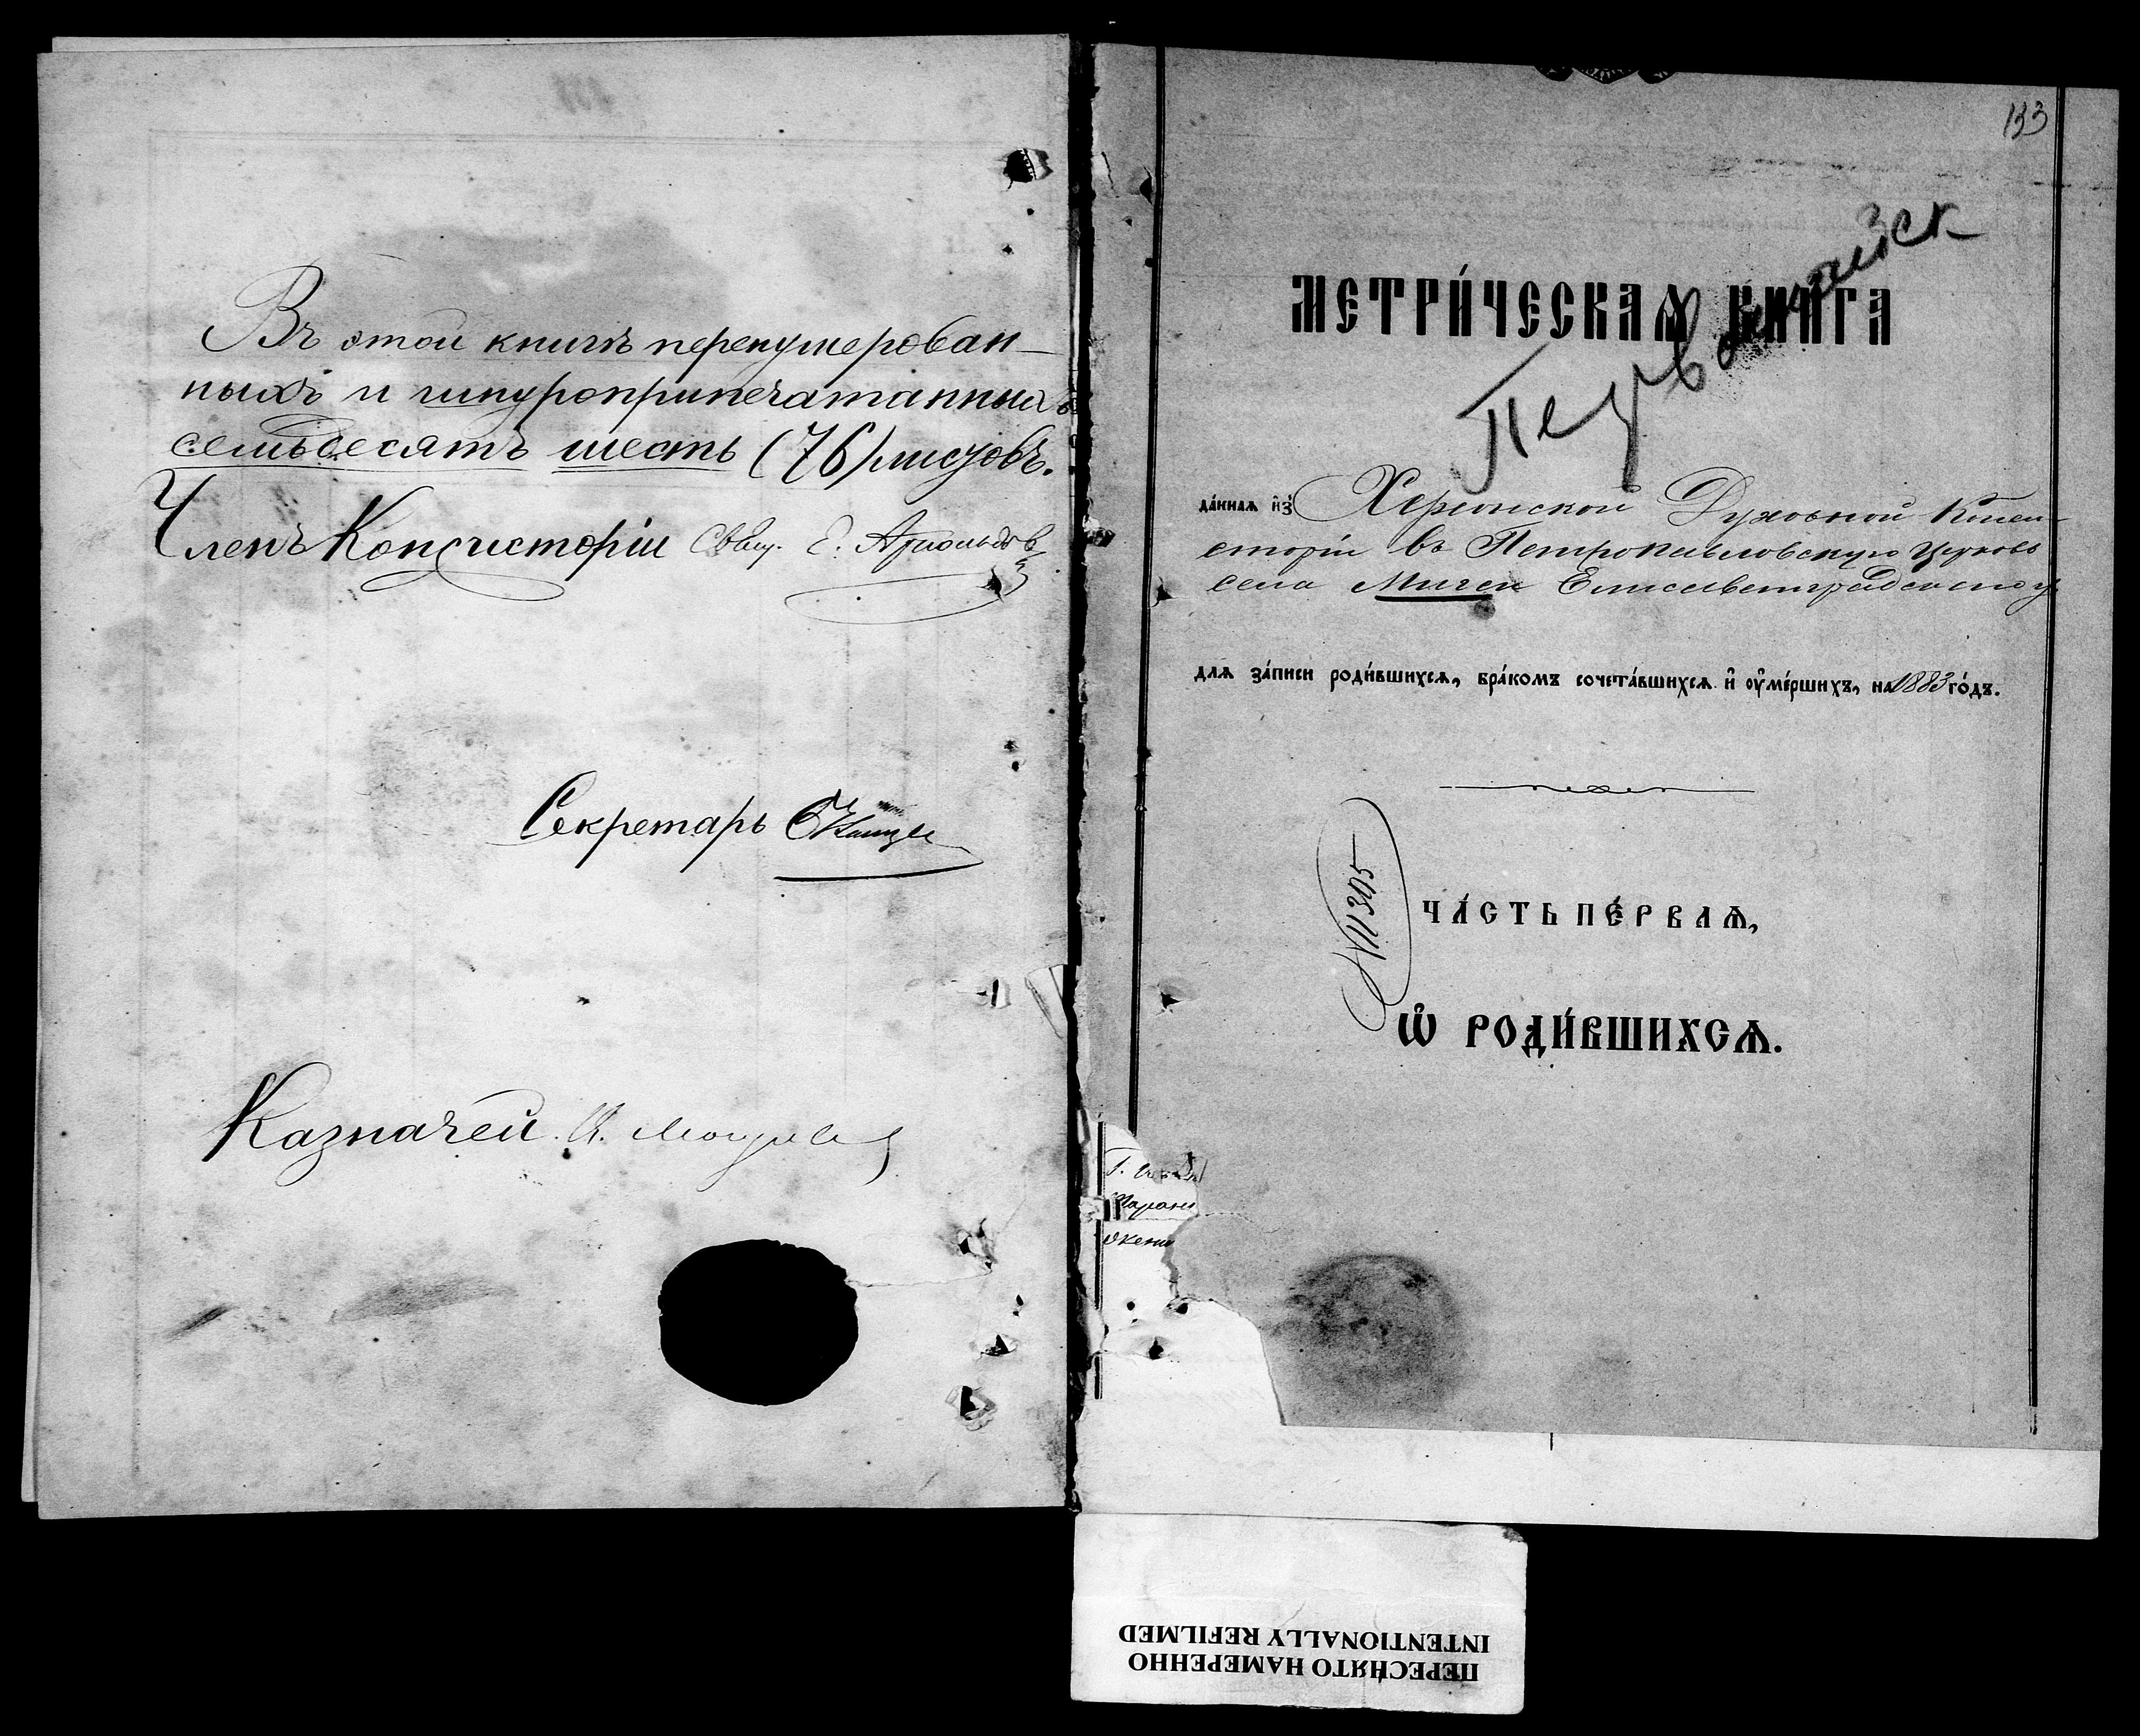 Въ этой книгѣ перенумерован-
ныхъ и шнуроприпечатанныхъ
семьдесятъ шесть (76) листовъ.
Членъ Консисторіи Свящ.
Секретарь
Казначей
133
МЕТРИ́ЧЕСКАѦ КНИ́ГА
Первомайск
да́ннаѧ и҆з̾ Херсонской Духовной Конси-
сторіи въ Петропавловскую церковь
села Мигеи Елисаветградскаго у.
длѧ за́писи роди́вшихсѧ, бра́комъ сочета́вшихсѧ и҆ ᲂу҆ме́ршихъ, на 1883 го́дъ.
№11305
ЧА́СТЬ ПЕ́РВАѦ,
Ѡ҆ РОДИ́ВШИХСѦ.
ПЕРЕСНЯТО НАМЕРЕННО
INTENTIONALLY REFILMED